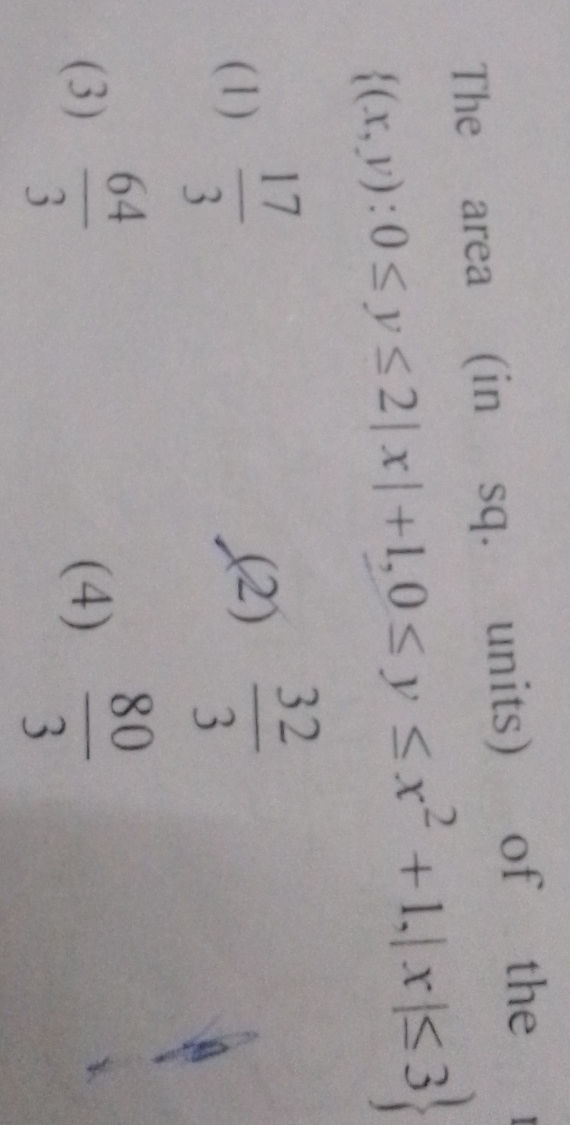 The area (in sq. units) of the
{(x, y) : 0 ≤ y ≤ 2 | x | +1, 0 ≤ y ≤ x² + 1, | x | ≤ 3}
(1) 17/3 (2) 32/3
(3) 64/3 (4) 80/3